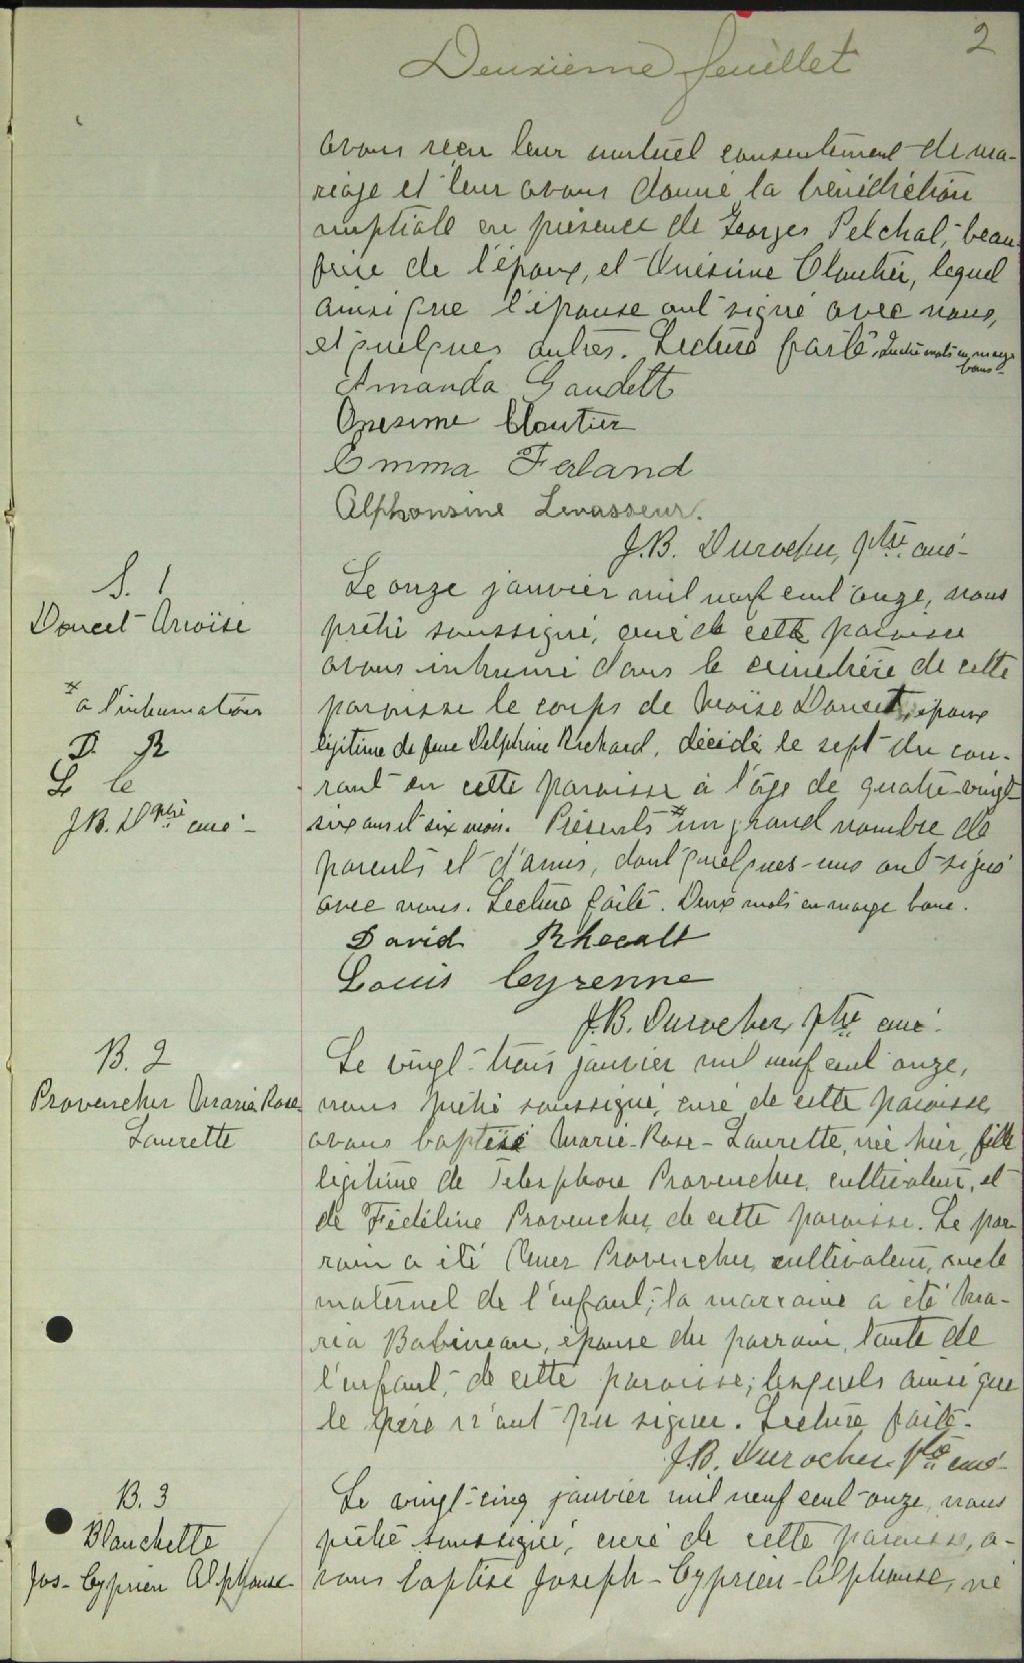 2
Deuxième feuillet
avons reçu leur mutuel consentement de ma-
riage et leur avons donné la bénédiction
nuptiale en présence de Georges Pelchat, beau-
frère de l'époux, et Onésime Cloutier, lequel
ainsi que l'épouse ont signé avec nous,
et quelques autres. Lecture faite. mots en marge
bons-
Amanda Gaudett
Onesime Cloutier
Emma Ferland
Alphonsine Levasseur.
J.B. Durocher, ptre curé-
S. 1
Doucet Moïse
Le onze janvier mil neuf cent onze, nous
prêtre soussigné, curé de cette paroisse
avons inhumé dans le cimetière de cette
* à l'inhumation
paroisse le corps de Moïse Doucet, époux
D. R
légitime de feue Delphine Richard, décédé le sept du cou-
L. Ce
rant en cette paroisse à l'âge de quatre-vingt-
J.B. D ptre curé-
six ans et six mois. Présents * un grand nombre de
parents et d'amis, dont quelques-uns ont signé
avec nous. Lecture faite. Deux mots en marge bons.
David Rhecult
Louis Cyrenne
J.B. Durocher, ptre curé-
B. 2
Provencher Marie Rose
Laurette
Le vingt-trois janvier mil neuf cent onze,
nous prêtre soussigné, curé de cette paroisse,
avons baptisé Marie-Rose-Laurette, née hier, fille
légitime de Télesphore Provencher, cultivateur, et
de Fédéline Provencher, de cette paroisse. Le par-
rain a été Omer Provencher, cultivateur, oncle
maternel de l'enfant; la marraine a été Ma-
ria Babineau, épouse du parrain, tante de
l'enfant, de cette paroisse; lesquels ainsi que
le père n'ont pu signer. Lecture faite.
J.B. Durocher ptre curé-
B. 3
Blanchette
Jos-Cyprien Alphonse
Le vingt-cinq janvier mil neuf cent onze, nous
prêtre soussigné, curé de cette paroisse, a-
vons baptisé Joseph-Cyprien-Alphonse, né